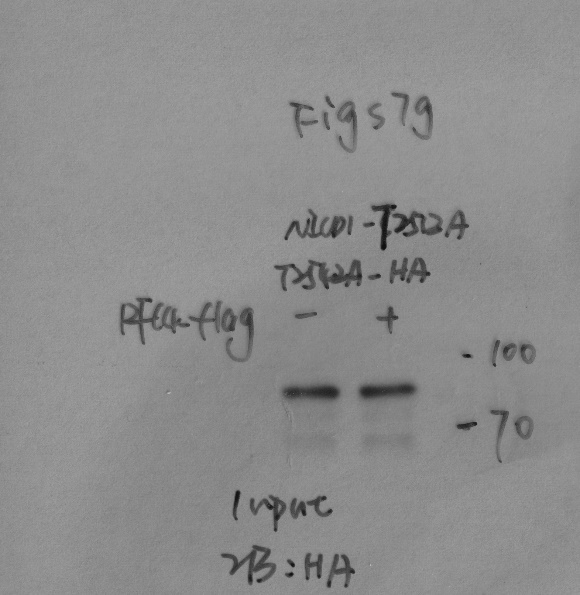 Fig s7g
NICD1-T2512A
T2542A-HA
RFC4-flag - +
- 100
- 70
Input
IB: HA